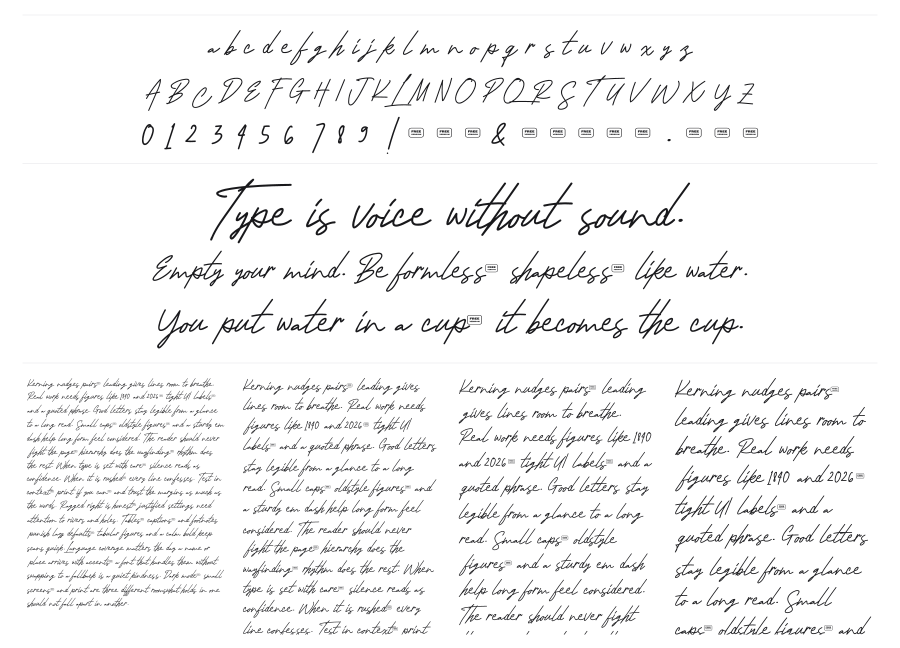 a b c d e f g h i j k l m n o p q r s t u v w x y z
A B C D E F G H I J K L M N O P Q R S T U V W X Y Z
0 1 2 3 4 5 6 7 8 9 ! FREE FREE FREE & FREE FREE FREE FREE FREE . FREE FREE FREE
Type is voice without sound.
Empty your mind. Be formless FREE shapeless FREE like water.
You put water in a cup FREE it becomes the cup.
Kerning nudges pairs leading gives lines room to breathe.
Real work needs figures like 1890 and 2026 tight UI labels
and a quoted phrase. Good letters stay legible from a glance
to a long read. Small caps oldstyle figures and a sturdy em
dash help long form feel considered. The reader should never
fight the page hierarchy does the wayfinding rhythm does
the rest. When type is set with care silence reads as
confidence. When it is rushed every line confesses. Test in
context print if you can and trust the margins as much as
the words. Ragged right is honest justified settings need
attention to rivers and holes. Tables captions and footnotes
punish lazy defaults tabular figures and a calm bold keep
sums quiet. Language coverage matters the day a name or
place arrives with accents a font that handles them without
swapping to a fallback is a quiet kindness. Dark mode small
screens and print are three different rooms hold in one
should not fall apart in another.
Kerning nudges pairs leading gives
lines room to breathe. Real work needs
figures like 1890 and 2026 tight UI
labels and a quoted phrase. Good letters
stay legible from a glance to a long
read. Small caps oldstyle figures and
a sturdy em dash help long form feel
considered. The reader should never
fight the page hierarchy does the
wayfinding rhythm does the rest. When
type is set with care silence reads as
confidence. When it is rushed every
line confesses. Test in context print
Kerning nudges pairs leading
gives lines room to breathe.
Real work needs figures like 1890
and 2026 tight UI labels and a
quoted phrase. Good letters stay
legible from a glance to a long
read. Small caps oldstyle
figures and a sturdy em dash
help long form feel considered.
The reader should never fight
Kerning nudges pairs
leading gives lines room to
breathe. Real work needs
figures like 1890 and 2026
tight UI labels and a
quoted phrase. Good letters
stay legible from a glance
to a long read. Small
caps oldstyle figures and